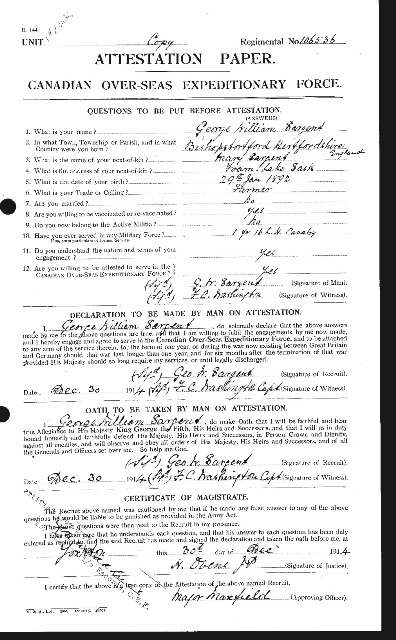 B. 144
UNIT
Copy
Regimental No. 106536
ATTESTATION PAPER.
CANADIAN OVER-SEAS EXPEDITIONARY FORCE.
QUESTIONS TO BE PUT BEFORE ATTESTATION.
(ANSWERS)
1. What is your name? George William Sargent
2. In what Town, Township or Parish, and in what
Country were you born? Bishopstortford Hertfordshire England
3. What is the name of your next-of-kin? Mary Sargent
4. What is the address of your next-of-kin? Foam Lake Sask
5. What is the date of your birth? 29th Jan 1892
6. What is your Trade or Calling? Farmer
7. Are you married? No
8. Are you willing to be vaccinated or re-vaccinated? Yes
9. Do you now belong to the Active Militia? No
10. Have you ever served in any Military Force? 1 yr 16 L.H. Cavalry
11. Do you understand the nature and terms of your
engagement? Yes
12. Are you willing to be attested to serve in the
CANADIAN OVER-SEAS EXPEDITIONARY FORCE? Yes
(Sgd) G. W. Sargent (Signature of Man).
(Sgd) F. C. Washington (Signature of Witness).
DECLARATION TO BE MADE BY MAN ON ATTESTATION.
I, George William Sargent, do solemnly declare that the above answers
made by me to the above questions are true, and that I am willing to fulfil the engagements by me now made,
and I hereby engage and agree to serve in the Canadian Over-Seas Expeditionary Force, and to be attached
to any arm of the service therein, for the term of one year, or during the war now existing between Great Britain
and Germany should that war last longer than one year, and for six months after the termination of that war
provided His Majesty should so long require my services, or until legally discharged.
(Sgd) Geo. W. Sargent (Signature of Recruit).
Date Dec. 30 1914 (Sgd) F. C. Washington Capt (Signature of Witness)
OATH TO BE TAKEN BY MAN ON ATTESTATION.
I, George William Sargent, do make Oath, that I will be faithful and bear
true Allegiance to His Majesty King George the Fifth, His Heirs and Successors, and that I will as in duty
bound honestly and faithfully defend His Majesty, His Heirs and Successors, in Person, Crown and Dignity,
against all enemies, and will observe and obey all orders of His Majesty, His Heirs and Successors, and of all
the Generals and Officers set over me. So help me God.
(Sgd) Geo. W Sargent (Signature of Recruit)
Date Dec. 30 1914 (Sgd) F. C. Washington Capt (Signature of Witness)
CERTIFICATE OF MAGISTRATE.
The Recruit above named was cautioned by me that if he made any false answer to any of the above
questions he would be liable to be punished as provided in the Army Act.
The above questions were then read to the Recruit in my presence.
I have taken care that he understands each question, and that his answer to each question has been duly
entered as replied to, and the said Recruit has made and signed the declaration and taken the oath before me, at
Yorkton this 30th day of Dec 1914
(Signature of Justice)
I certify that the above is a true copy of the Attestation of the above named Recruit.
Major (Approving Officer)